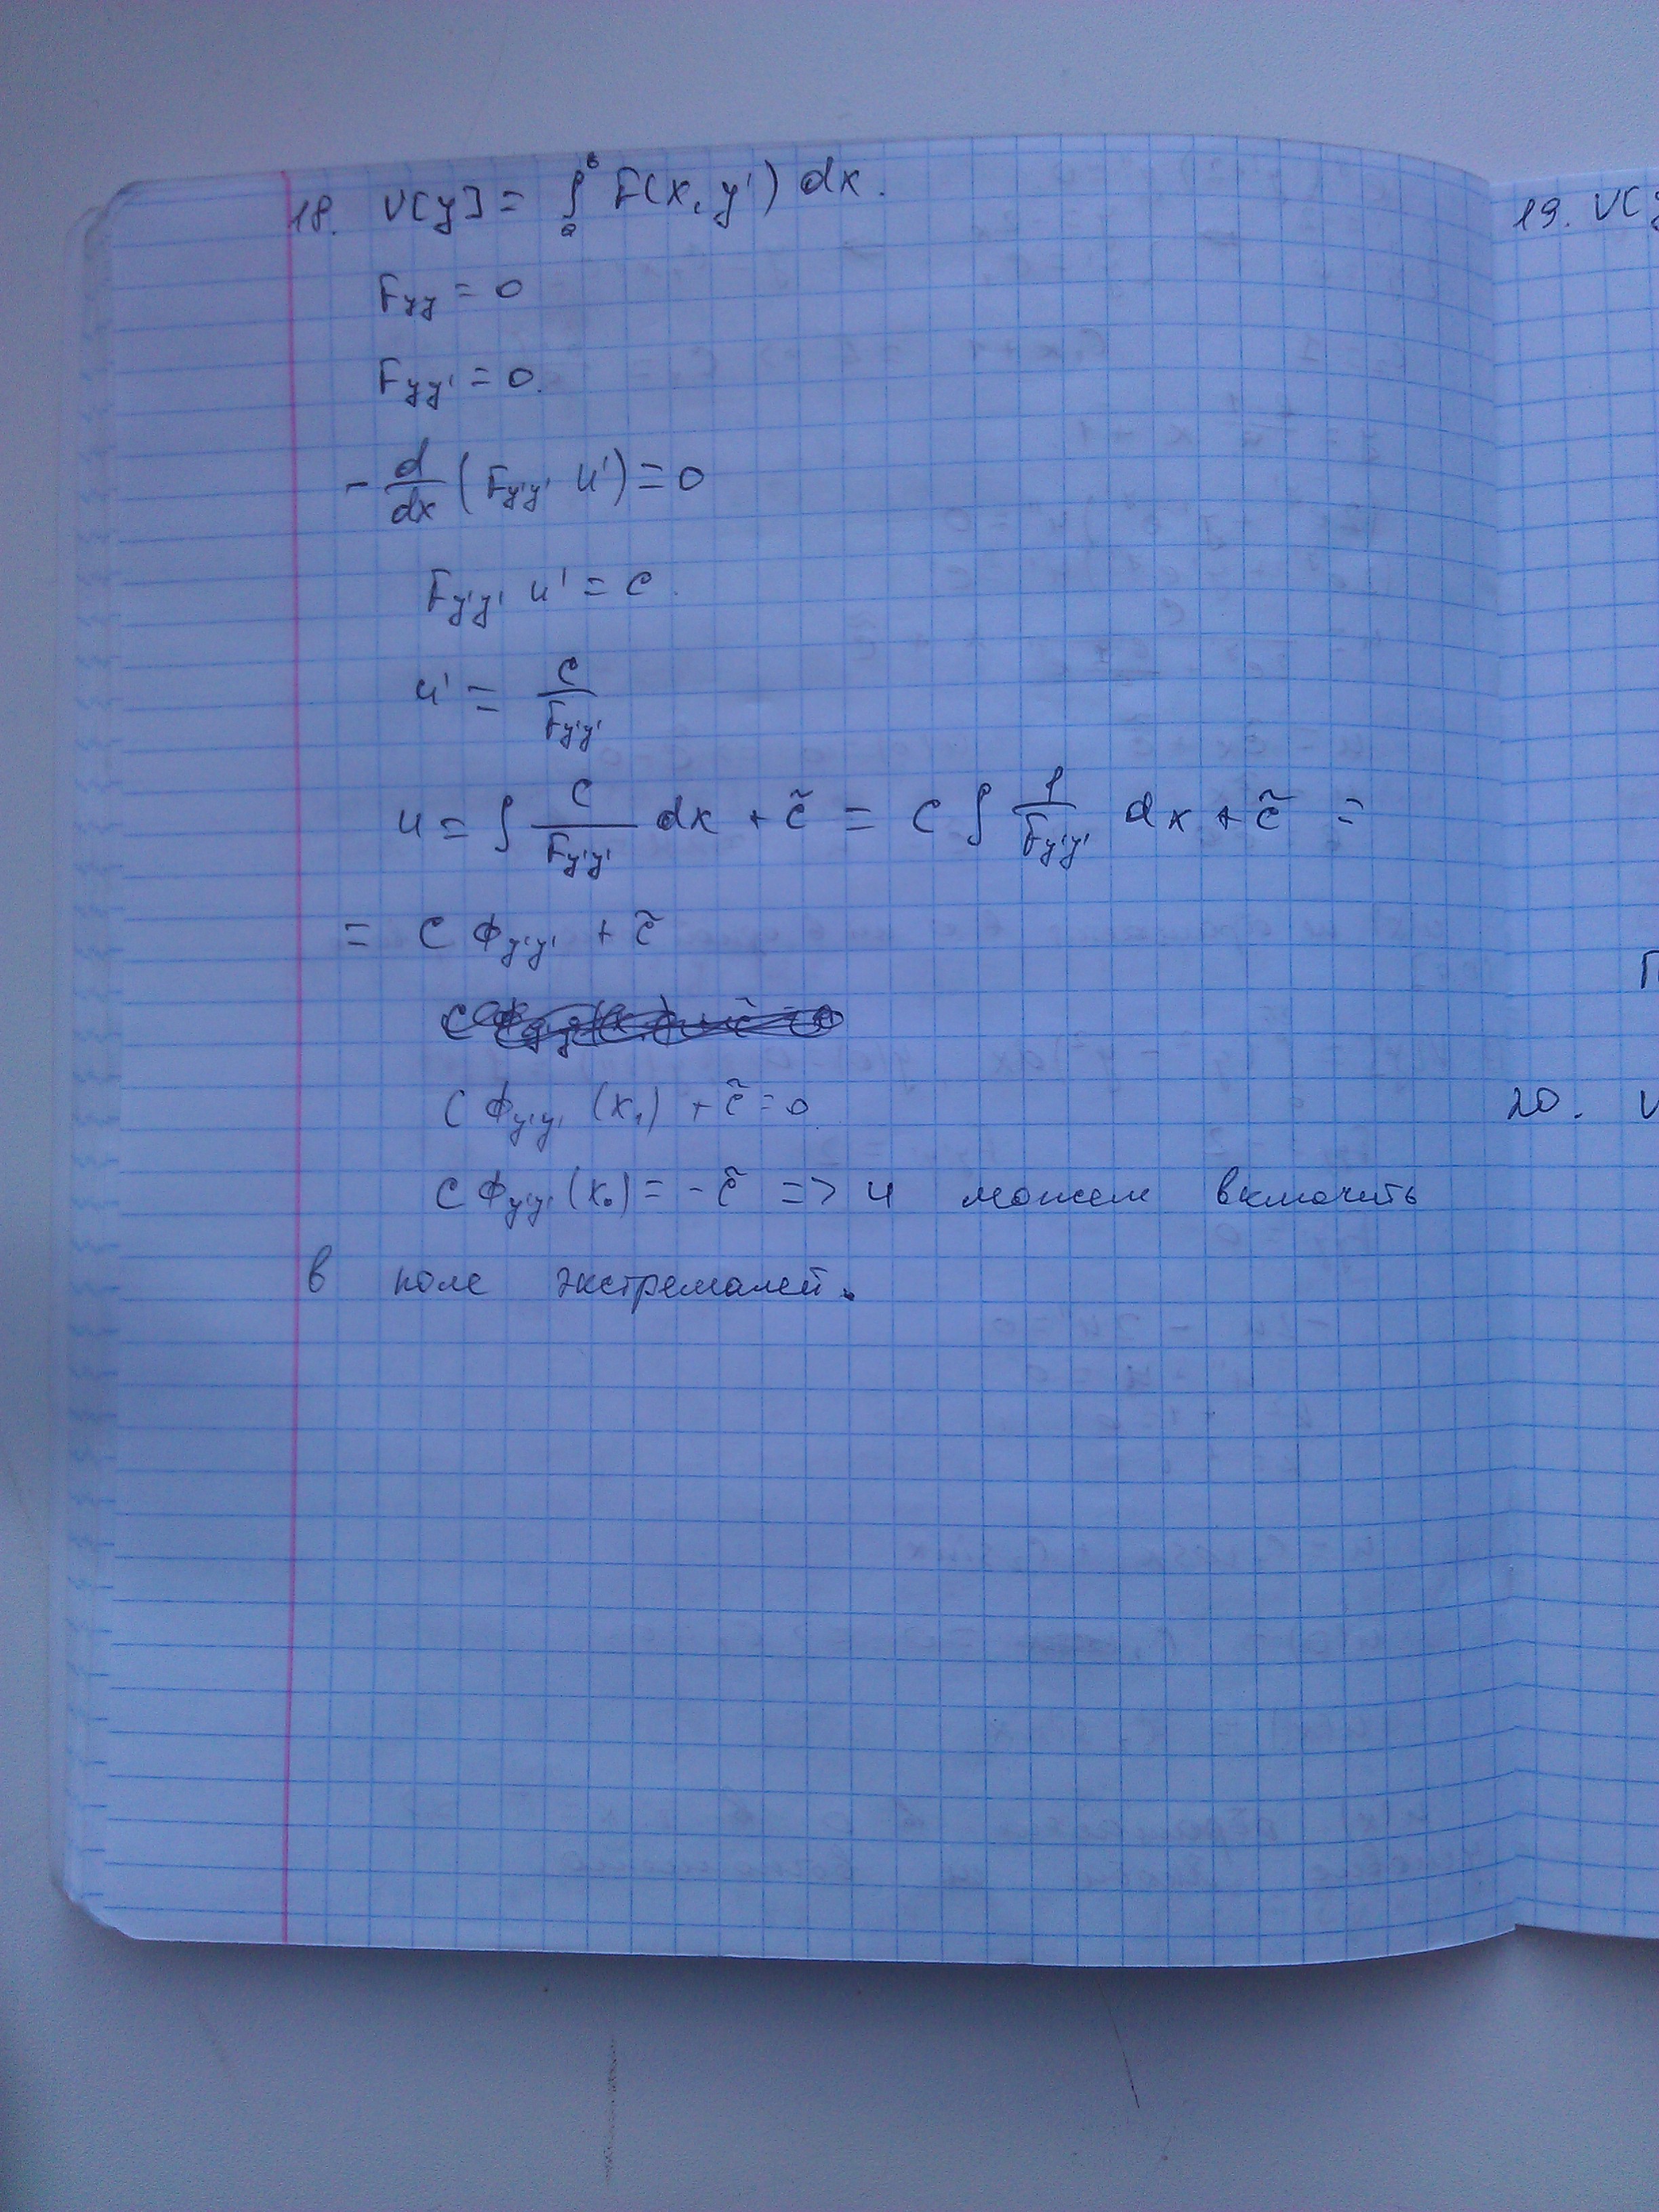 18. V[y] = ∫ₐᵇ F(x, y') dx.
F_yy = 0
F_yy' = 0.
- d/dx (F_y'y' u') = 0
F_y'y' u' = c.
u' = c / F_y'y'
u = ∫ c / F_y'y' dx + c̃ = c ∫ 1 / F_y'y' dx + c̃ =
= c Φ_y'y' + c̃
c Φ_y'y' (x₁) + c̃ = 0
c Φ_y'y' (x₀) = - c̃ => u можем включить
в поле экстремалей.
19. V[y
20. V